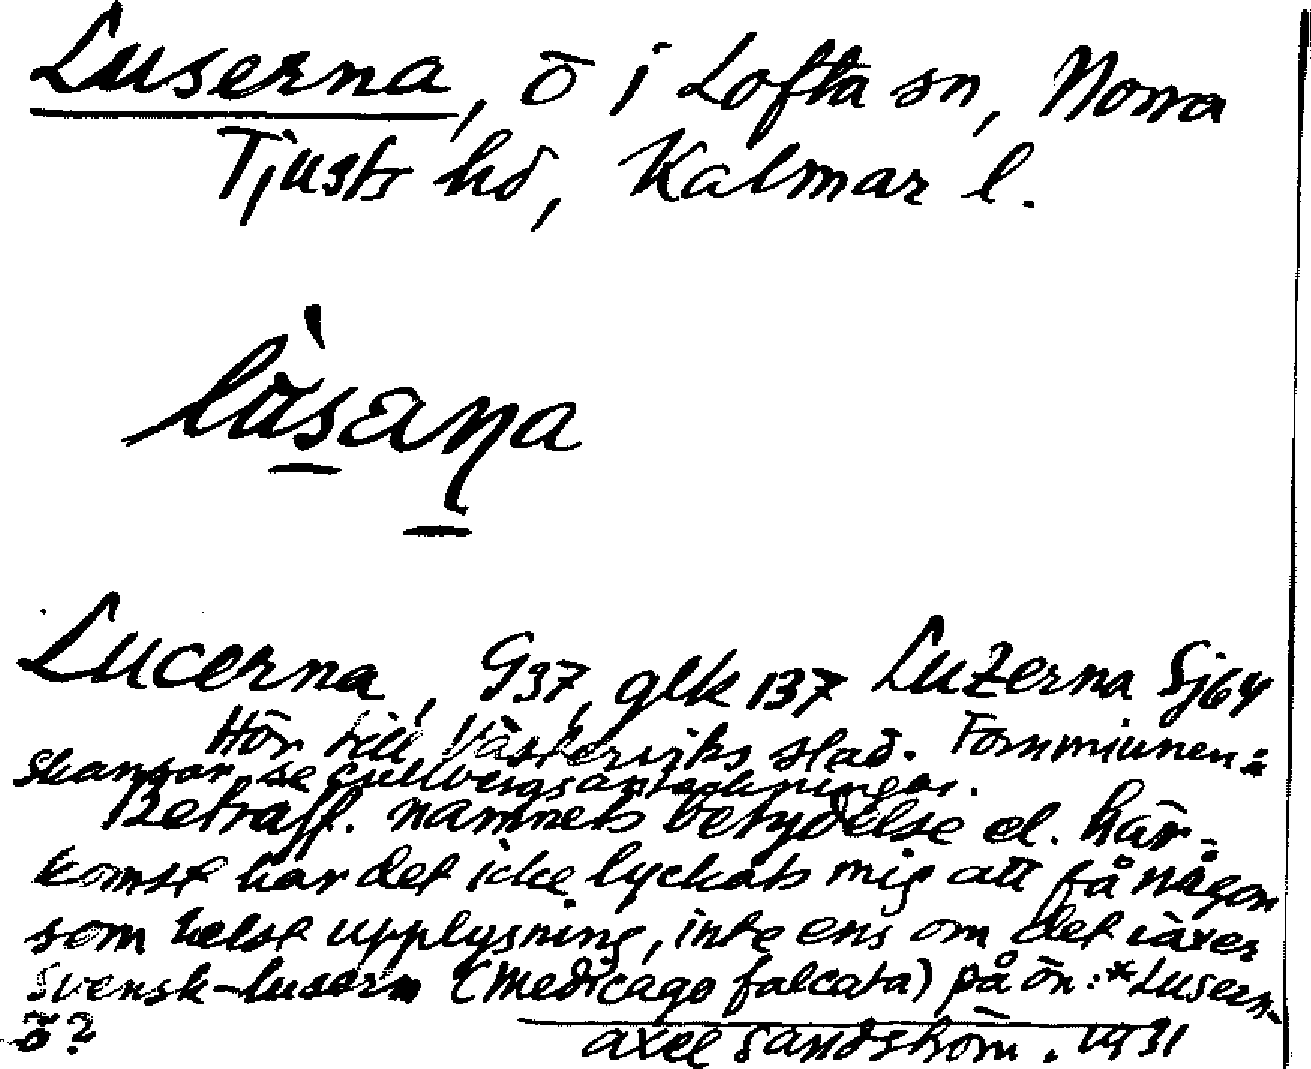 Luserna, ö i Lofta sn, Norra
Tjusts hd, Kalmar l.
lùsaṇa
Lucerna, G37, glk 137 Luzerna Sj64
Hör till Västerviks stad. Fornminnen:
skansar, se Gullbergsanteckningar.
Beträff. namnets betydelse el. här-
komst har det icke lyckats mig att få någon
som helst upplysning, inte ens om det växer
svensk-lusern (Medicago falcata) på ön: *Lusern-
ö?
Axel Sandström. 1931